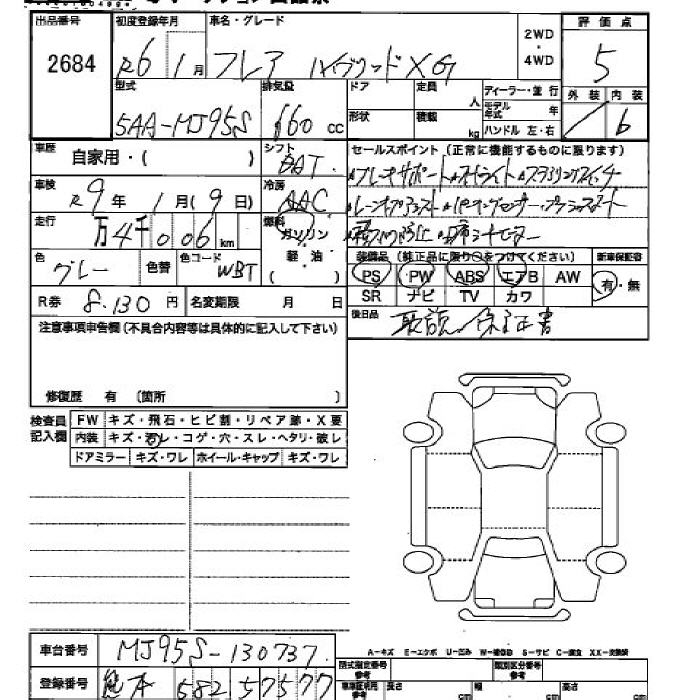 出品番号 初度登録年月 車名・グレード 2WD・4WD 評価点
2684 R6年1月 フレア ハイブリッドXG 5
型式 排気量 ドア 定員 人 ディーラー・並行 外装 内装
5AA-MJ95S 660cc 形状 積載 kg モデル年式 年 ハンドル 左・右 6
車歴 自家用・( ) シフト セールスポイント(正常に機能するものに限ります)
車検 R9年1月(9日) 冷房 AAC
走行 万4千006km 燃料 ガソリン 軽油 ( )
色 グレー 色替 色コード WBT
装備品(純正品に限り○をつけてください) 新車保証書
PS PW ABS エアB AW 有・無
SR ナビ TV カワ
R券 8,130円 名変期限 月 日
後日品 取説/保証書
注意事項申告欄(不具合内容等は具体的に記入して下さい)
修復歴 有 (箇所 )
検査員記入欄 FW キズ・飛石・ヒビ割・リペア跡・X要
内装 キズ・汚レ・コゲ・穴・スレ・ヘタリ・破レ
ドアミラー キズ・ワレ ホイール・キャップ キズ・ワレ
A-キズ E-エクボ U-凹み S-サビ C-腐食 XX-交換済
車台番号 MJ95S-130737
登録番号 熊本 582 57577
型式指定番号参考 類別区分番号参考
車庫証明用参考 長さ cm 幅 cm 高さ cm